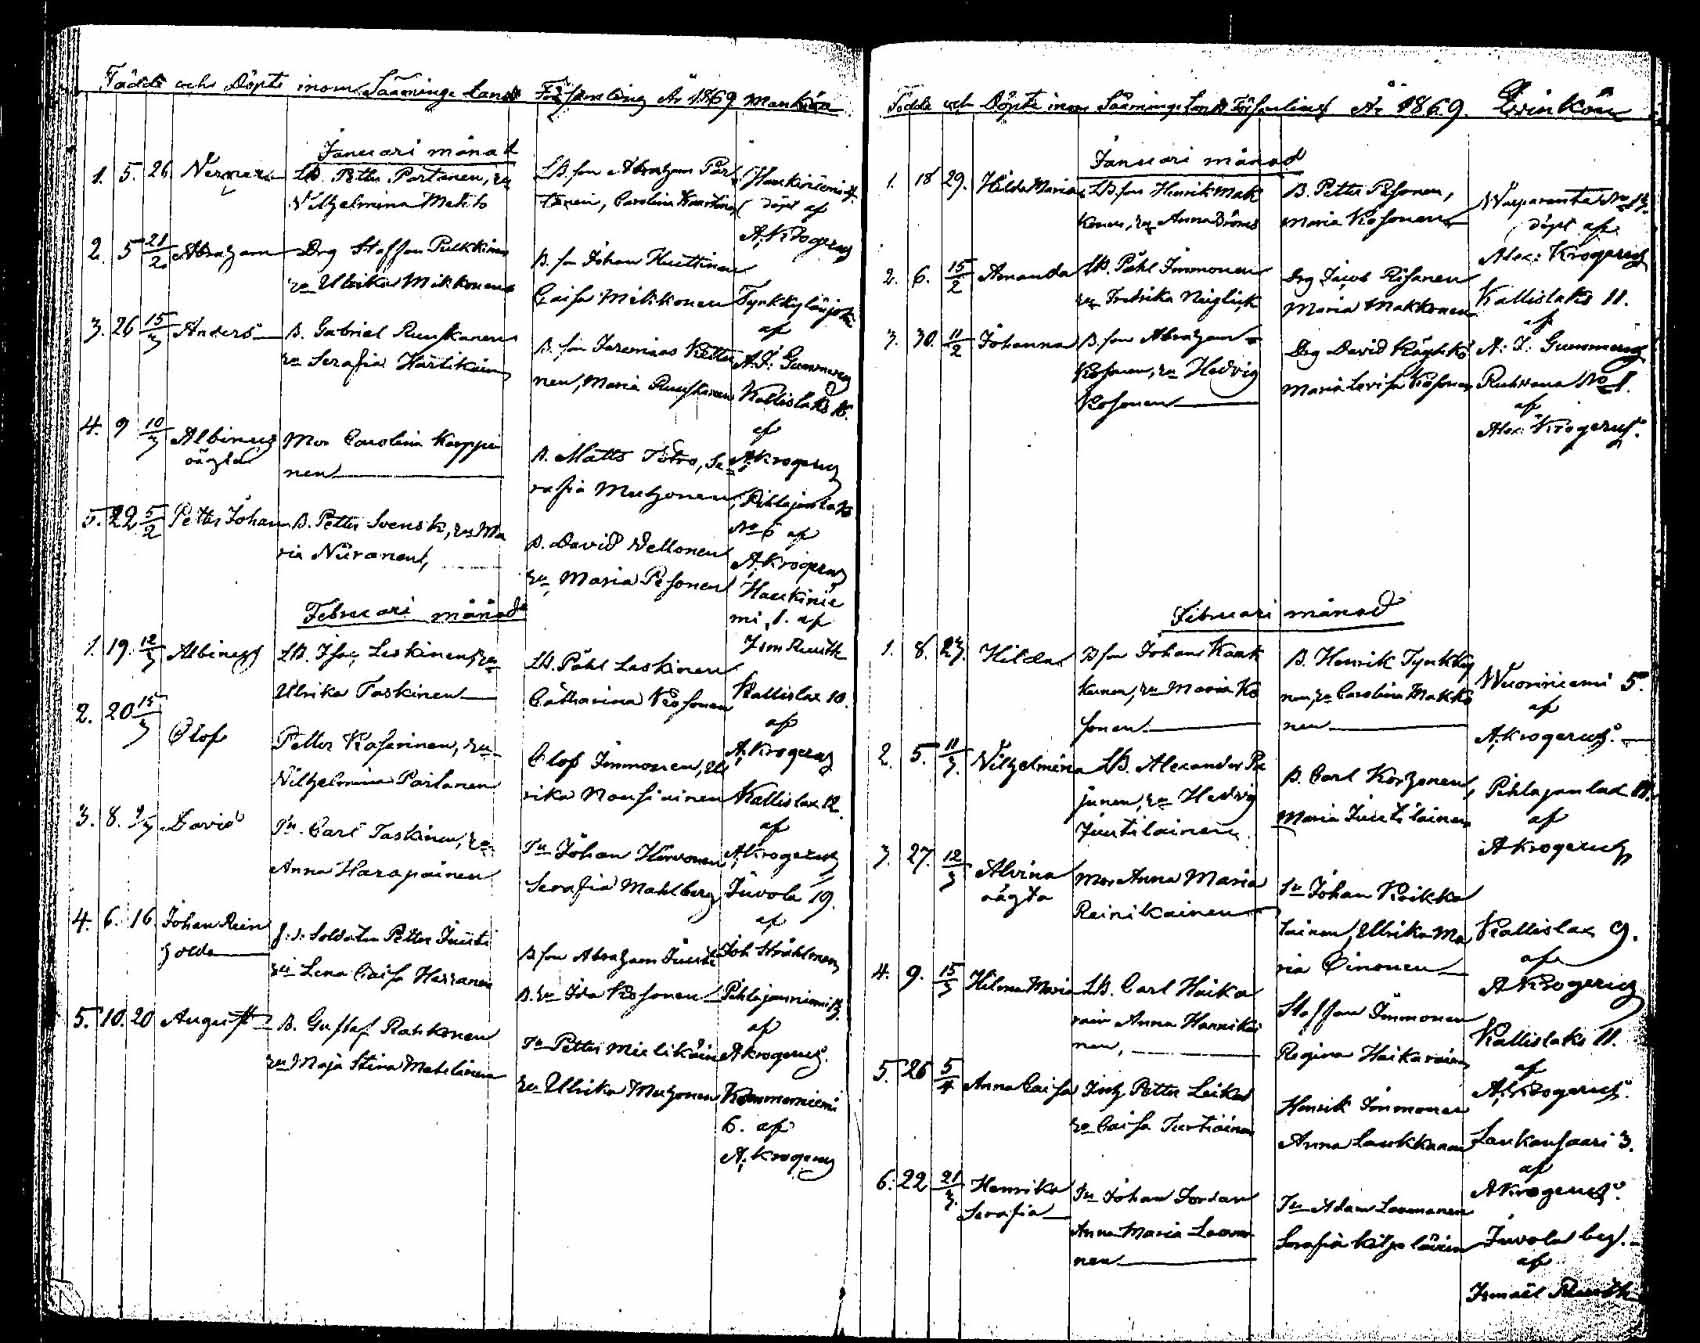 Födde och Döpte inom Sääminge Lands Församling År 1869 Mankön
Januari månad
1. 5. 26. LB. Petter Partanen, hu
Vilhelmina Mehto
LB. son Abraham Par
tanen, Carolina
Haukiniemi 4.
döpt af
A. Krogerus
2. 5 21/2 Abraham Drg Staffan Pulkkinen
hu Ulrika Mikkonen
B. son Johan Huttinen
Caisa Mikkonen
af
A. J. Gummerus
3. 26 15/3 Anders B. Gabriel Ruuskanen
hu Serafia Härtikäin
B. son Jeremias
nen, Maria Ruuskanen
Kallislaks 18.
af
A. Krogerus
4. 9 10/3 Albinus Mor Carolina Karppi
oägta nen
B. Matts Petro, Se
rafia Mutzonen
Pihlajanlaks
No 6 af
A. Krogerus
5. 22 5/2 Petter Johan B. Petter Svensk, hu Ma
ria Nüranen,
B. David Vellonen
hu Maria Pesonen
Haukinie
mi, 1. af
Februari månad
1. 19. 12/3 Albinus LB. Isac Leskinen, hu
Ulrika Taskinen
LB. Påhl Laskinen
Catharina Kosonen
Kallislax 10.
af
A. Krogerus
2. 20 15/3 Olof Petter Kaserinen, hu
Vilhelmina Partanen
Olof Immonen, Ul
rika Nousiainen
Kallislax 12.
af
A. Krogerus
3. 8. David Tn. Carl Taskinen, hu
Anna Harapainen
Tn Johan Hirvonen
Serafia Mahlberg
Juvola 19.
af
Joh Stråhlman
4. 6. 16 Johan Rein
hold f. d. Soldaten Petter Juuti
hu Lena Caisa Harranen
B. son Abraham Juuti
B. hu Ida Kosonen
Pihlajaniemi 3.
af
A. Krogerus.
5. 10. 20 August B. Gustaf Rahkonen
hu Maja Stina Matilainen
Tn Petter Mielikäin
hu Ulrika Mutzonen
Kommerniemi
6. af
A. Krogerus
Födde och Döpte inom Sääminge Lands Församling År 1869. Qvinkön
Januari månad
1. 18 29. Hilda Maria LB. son Henrik Mak
konen, hu Anna
B. Petter Pesonen,
Maria Kosonen
döpt af
Alex: Krogerus
2. 6. 15/2 Amanda LB. Påhl Immonen
hu Fredrika Niiglick
Drg Jacob Räsänen
Maria Makkonen
Kallislaks 11.
af
A. J. Gummerus
3. 30. 11/2 Johanna B. son Abraham
Kosonen, hu Hedvig
Kosonen
Drg David
Maria Lovisa Kosonen
No 1.
af
Alex: Krogerus.
Februari månad
1. 8. 27. Hilda B son Johan Kauk
kanen, hu Maria Ko
sonen
B. Henrik Tynkky
nen, hu Carolina Makko
nen
Wuoriniemi 5.
af
A. Krogerus.
2. 5. 11/3. Vilhelmina LB. Alexander Pa
junen, hu Hedvig
Juutilainen
B. Carl Korhonen,
Maria Juutilainen
Pihlajanlax 11.
af
A Krogerus
3. 27. 12/3 Alvina Mor Anna Maria
oägta Reinikainen
Tn Johan Koikka
lainen, Ulrika Ma
ria Oinonen
Kallislax 9.
af
A Krogerus
4. 9. 15/3 Hilma Maria LB. Carl Haika
rain Anna Hannikai
nen,
Staffan Immonen
Regina Haikarainen
Kallislaks 11.
af
A. Krogerus.
5. 26 5/4 Anna Caisa Inh Petter Leikas
hu Caisa Turtiainen
Henrik Immonen
Anna Laukkanen
Laukansaari 3.
af
A Krogerus.
6. 22 21/3. Henrika Tn Johan Jordan
Serafia Anna Maria Louma
nen
Tn Adam Loumanen
Serafia Kilpeläinen
Juvola by.
af
Ismaël Reuth